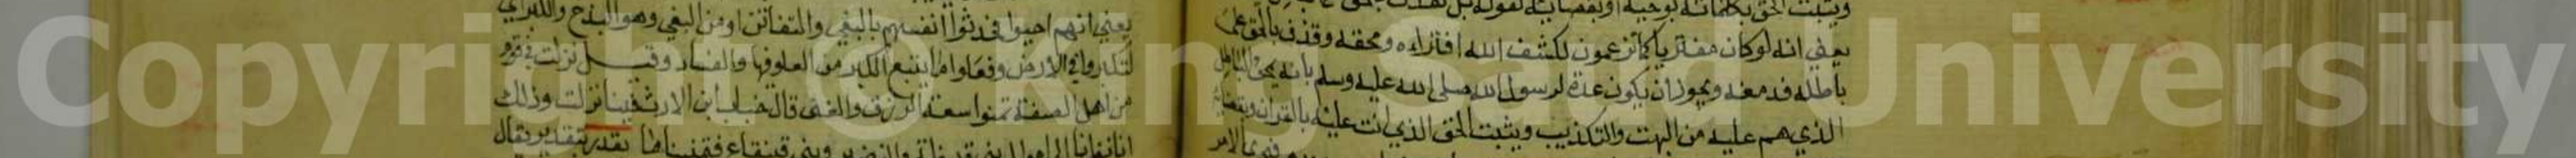 ويثبت الحق بكلماته بوحيه او بقضائه كقوله بل نقذف بالحق
يعني انه لو كان مفتريا كما تزعمون لكشف الله افتراءه ومحقه وقذف بالحق على
باطله فدمغه ويجوز ان يكون عدة لرسول الله صلى الله عليه وسلم بانه يمحو الباطل
الذي هم عليه من البهت والتكذيب ويثبت الحق الذي انت عليه بالقران وبقضائه
يعني انهم احيوا فحدثوا انفسهم بالبغي والتفاتن او من البغي وهو البذخ والكبر اي
لتكبروا في الارض وفعلوا ما يتبع الكبر من العلو فيها والفساد وقيل نزلت في قوم
من اهل الصفة تمنوا سعة الرزق والغنى قال خباب ابن الارث فينا نزلت وذلك
انا نظرنا الى اموال بني قريظة والنضير وبني قينقاع فتمنيناها بقدر بتقدير يقال
Copyright © King Saud University